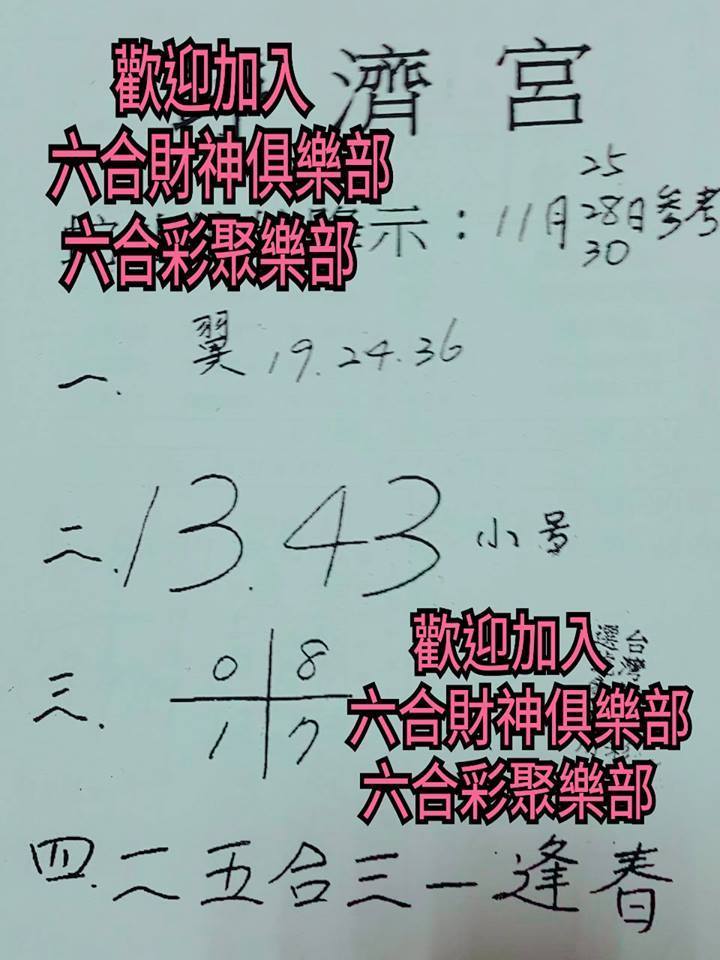 濟宮
歡迎加入
六合財神俱樂部
六合彩聚樂部
示：11月25 28日參考
30
一. 翼 19.24.36
二. 13.43 小号
三. 0 8
1 7
台灣
歡迎加入
六合財神俱樂部
六合彩聚樂部
四. 二五合三一逢春